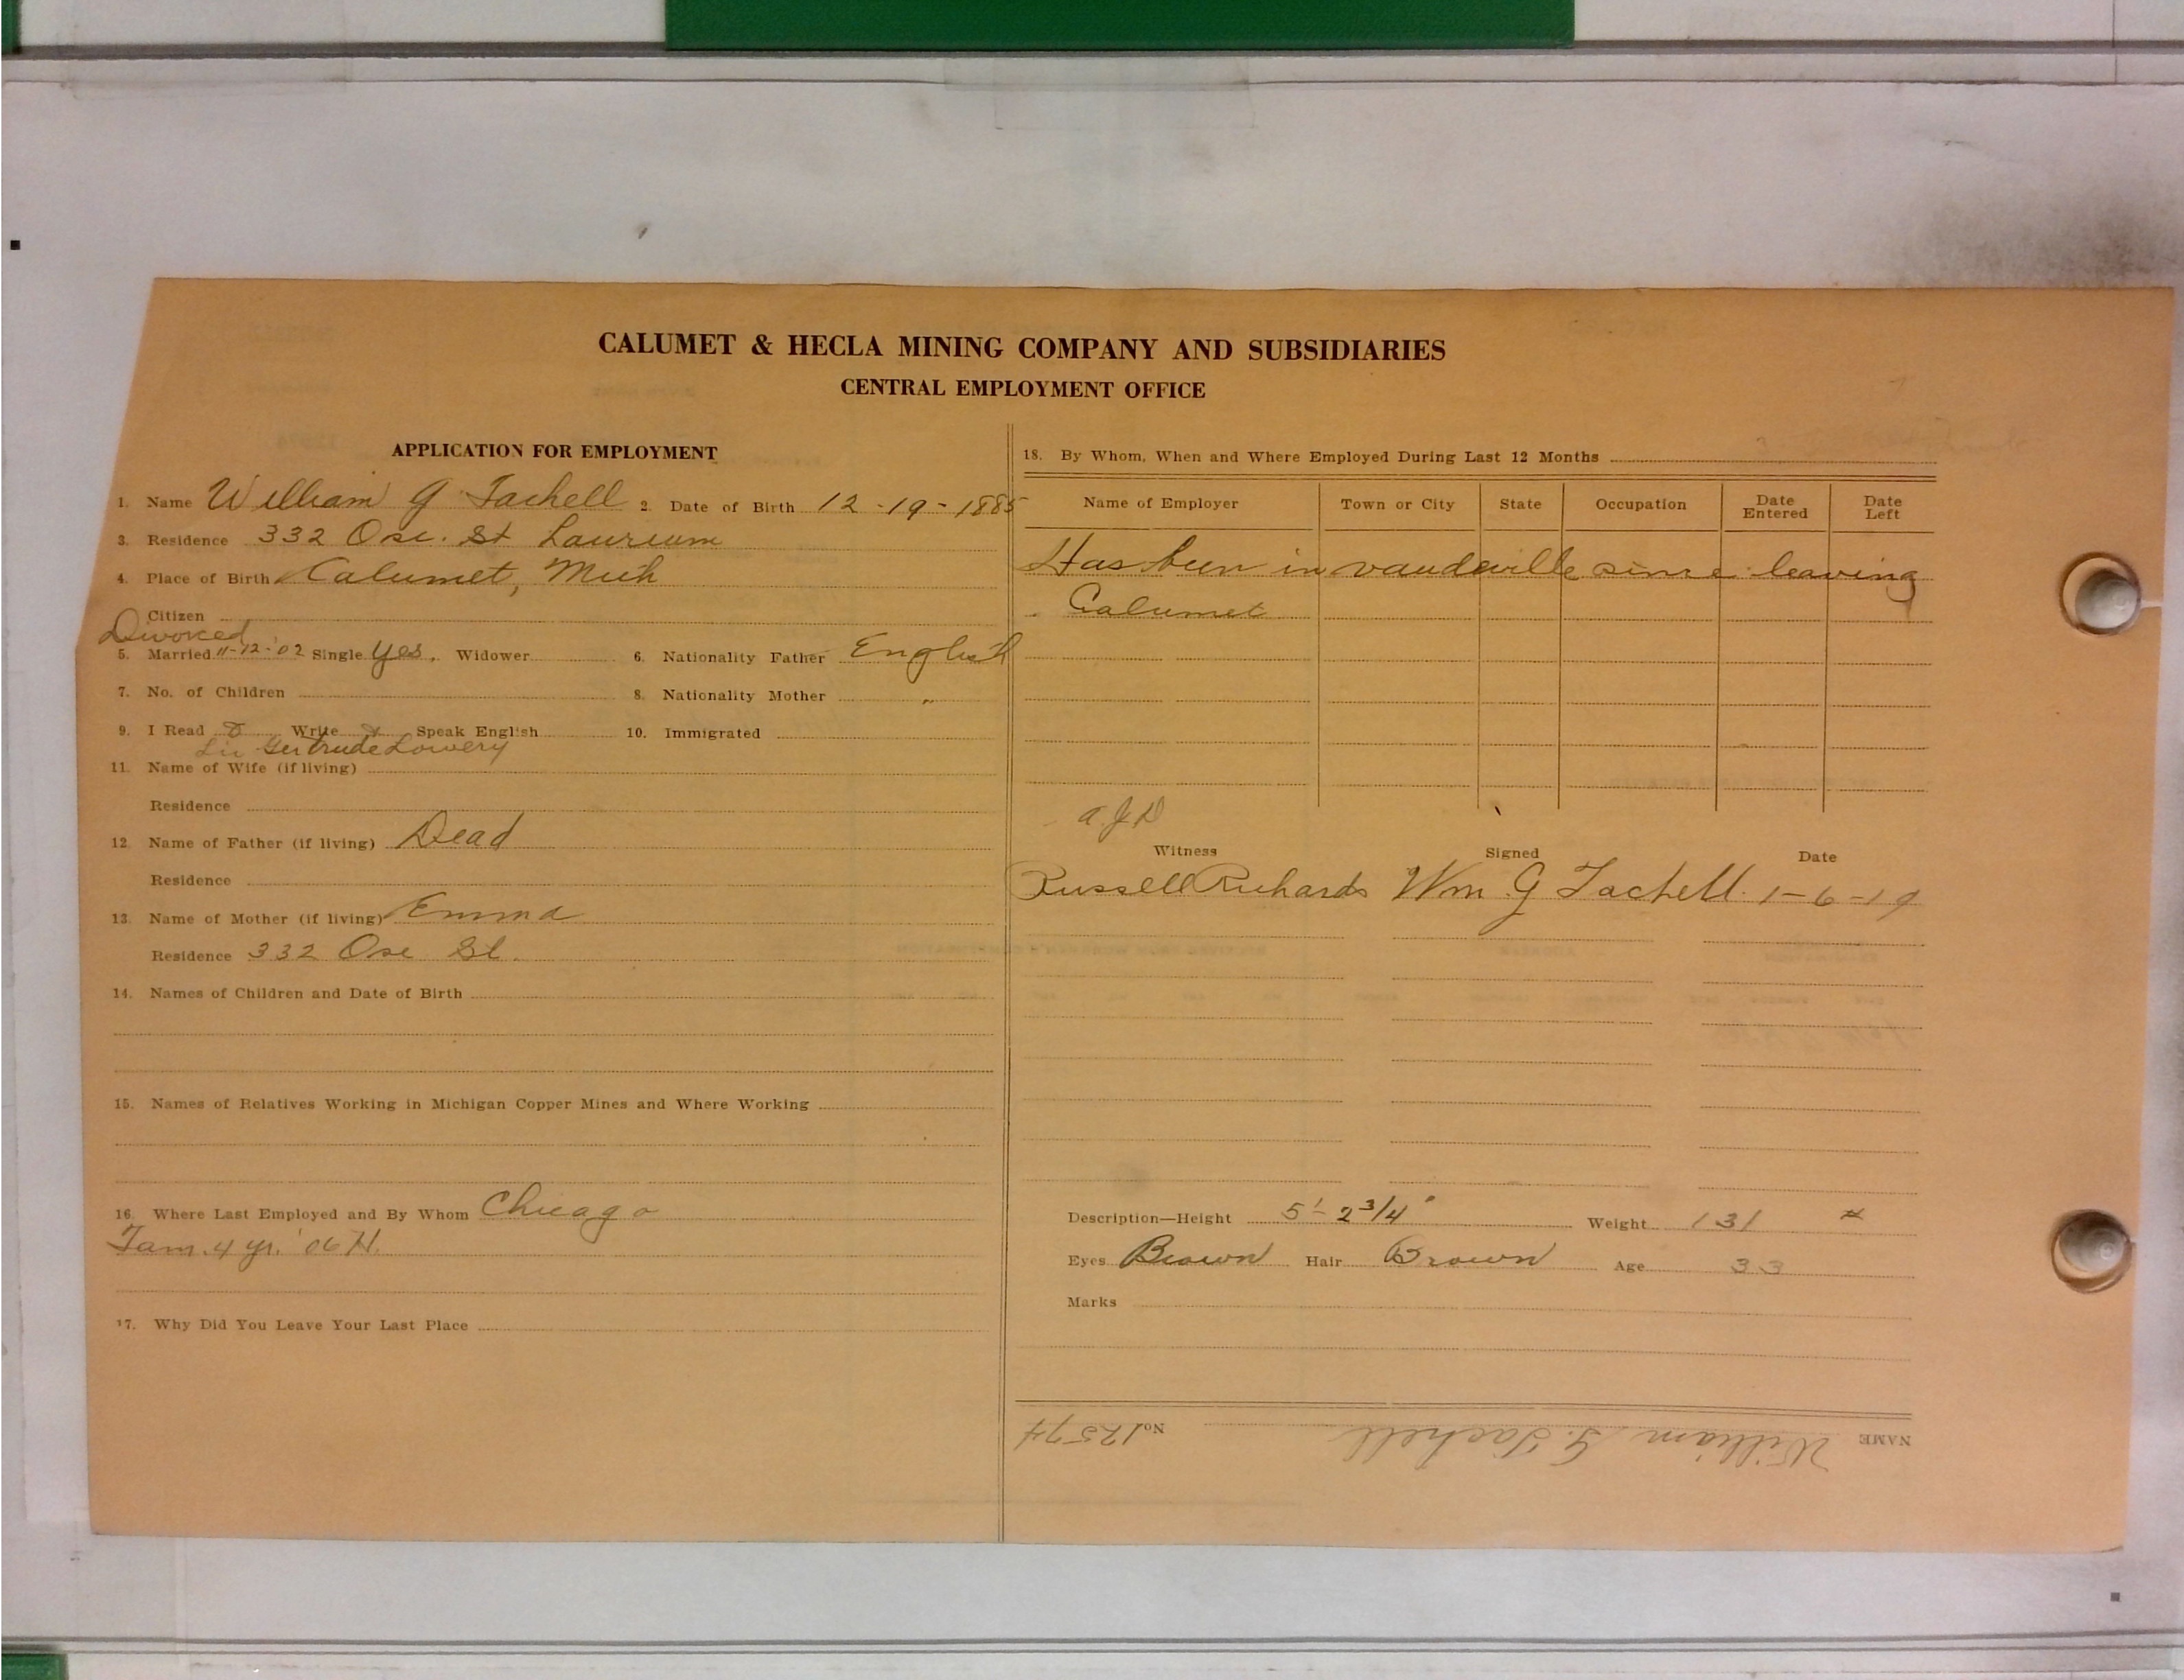 CALUMET & HECLA MINING COMPANY AND SUBSIDIARIES
CENTRAL EMPLOYMENT OFFICE
APPLICATION FOR EMPLOYMENT
1. Name William G Tachell 2. Date of Birth 12-19-1885
3. Residence 332 Osc. St Laurium
4. Place of Birth Calumet, Mich
Citizen
Divorced
5. Married 11-12-'02 Single Yes. Widower 6. Nationality Father English
7. No. of Children 8. Nationality Mother "
9. I Read Write Speak English 10. Immigrated
Gertrude Lowery
11. Name of Wife (if living)
Residence
12. Name of Father (if living) Dead
Residence
13. Name of Mother (if living) Emma
Residence 332 Osc St.
14. Names of Children and Date of Birth
15. Names of Relatives Working in Michigan Copper Mines and Where Working
16. Where Last Employed and By Whom Chicago
Tam. 4 yr. '06 H.
17. Why Did You Leave Your Last Place
18. By Whom, When and Where Employed During Last 12 Months
Name of Employer Town or City State Occupation Date Entered Date Left
Has been in vaudeville since leaving
Calumet
a.J.D
Witness Signed Date
Russell Richards Wm. G Tachell. 1-6-19
Description—Height 5'-2 3/4" Weight 131 #
Eyes Brown Hair Brown Age 33
Marks
NAME William G. Tachell No. 12574